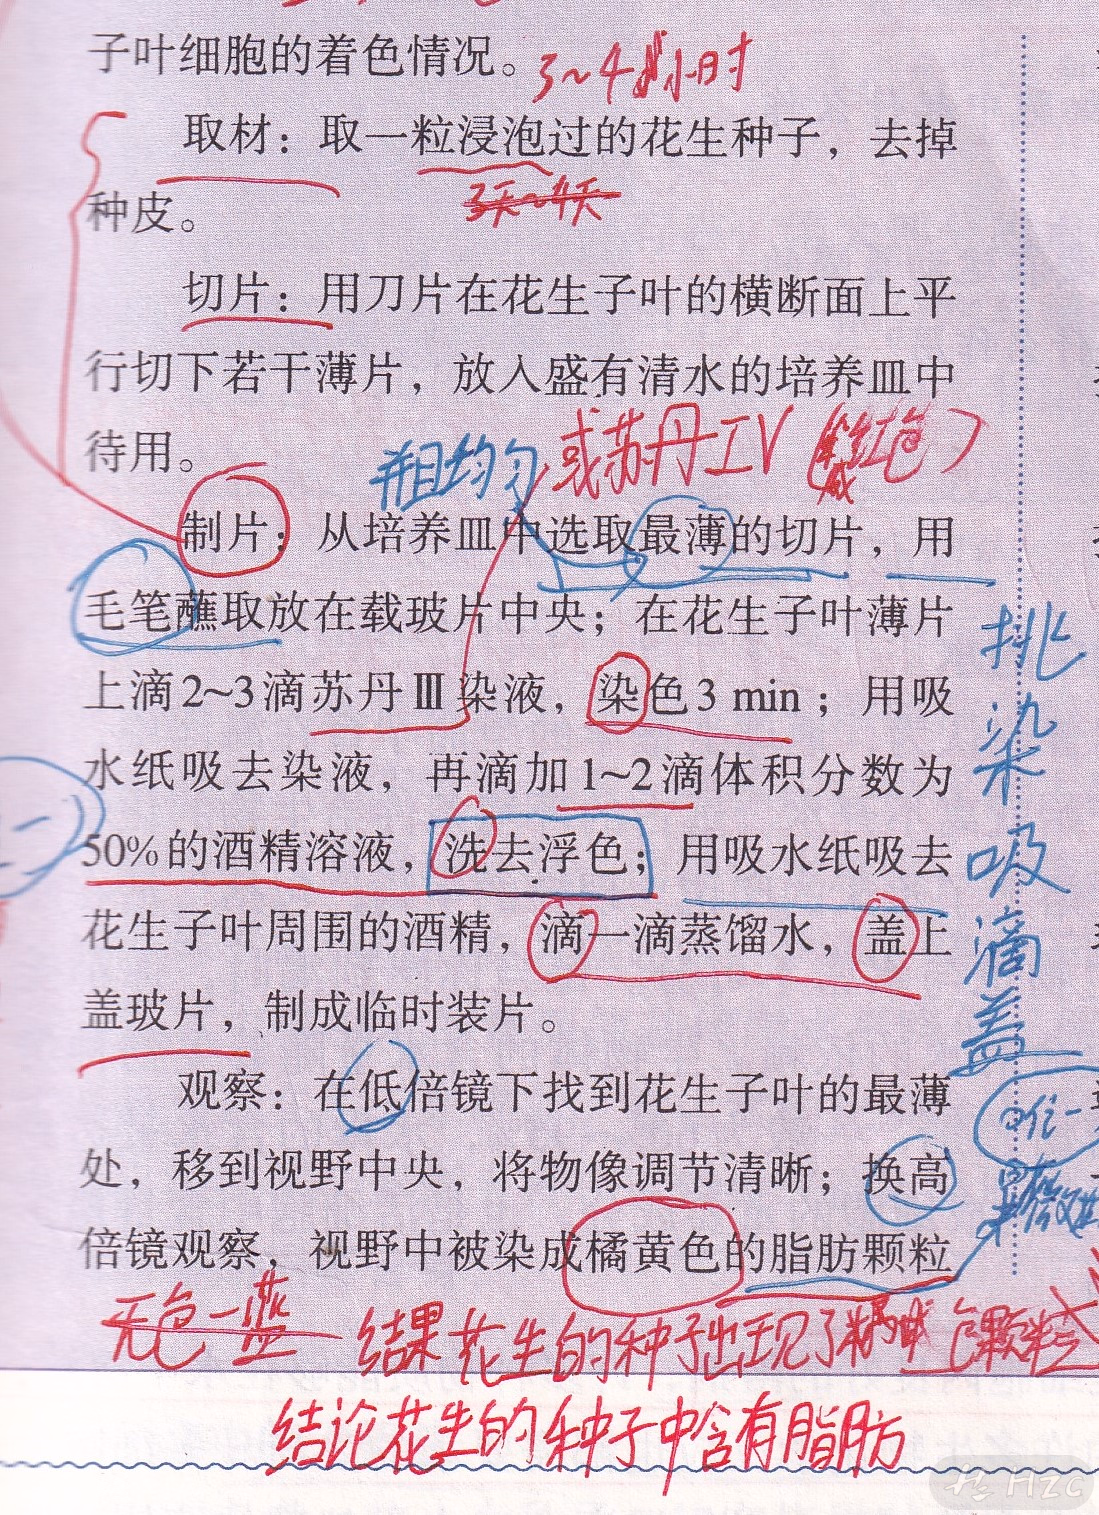 子叶细胞的着色情况。 3~4小时
取材：取一粒浸泡过的花生种子，去掉
种皮。 3天~4天
切片：用刀片在花生子叶的横断面上平
行切下若干薄片，放入盛有清水的培养皿中
待用。 且均匀 或苏丹IV（红色）
制片：从培养皿中选取最薄的切片，用
毛笔蘸取放在载玻片中央；在花生子叶薄片
上滴2~3滴苏丹Ⅲ染液，染色3 min；用吸
水纸吸去染液，再滴加1~2滴体积分数为
50%的酒精溶液，洗去浮色；用吸水纸吸去
花生子叶周围的酒精，滴一滴蒸馏水，盖上
盖玻片，制成临时装片。
挑
染
吸
滴
盖
观察：在低倍镜下找到花生子叶的最薄
处，移到视野中央，将物像调节清晰；换高
倍镜观察，视野中被染成橘黄色的脂肪颗粒
唯一
显微镜
无色一蓝 结果花生的种子出现了橘黄色颗粒
结论花生的种子中含有脂肪
HZC